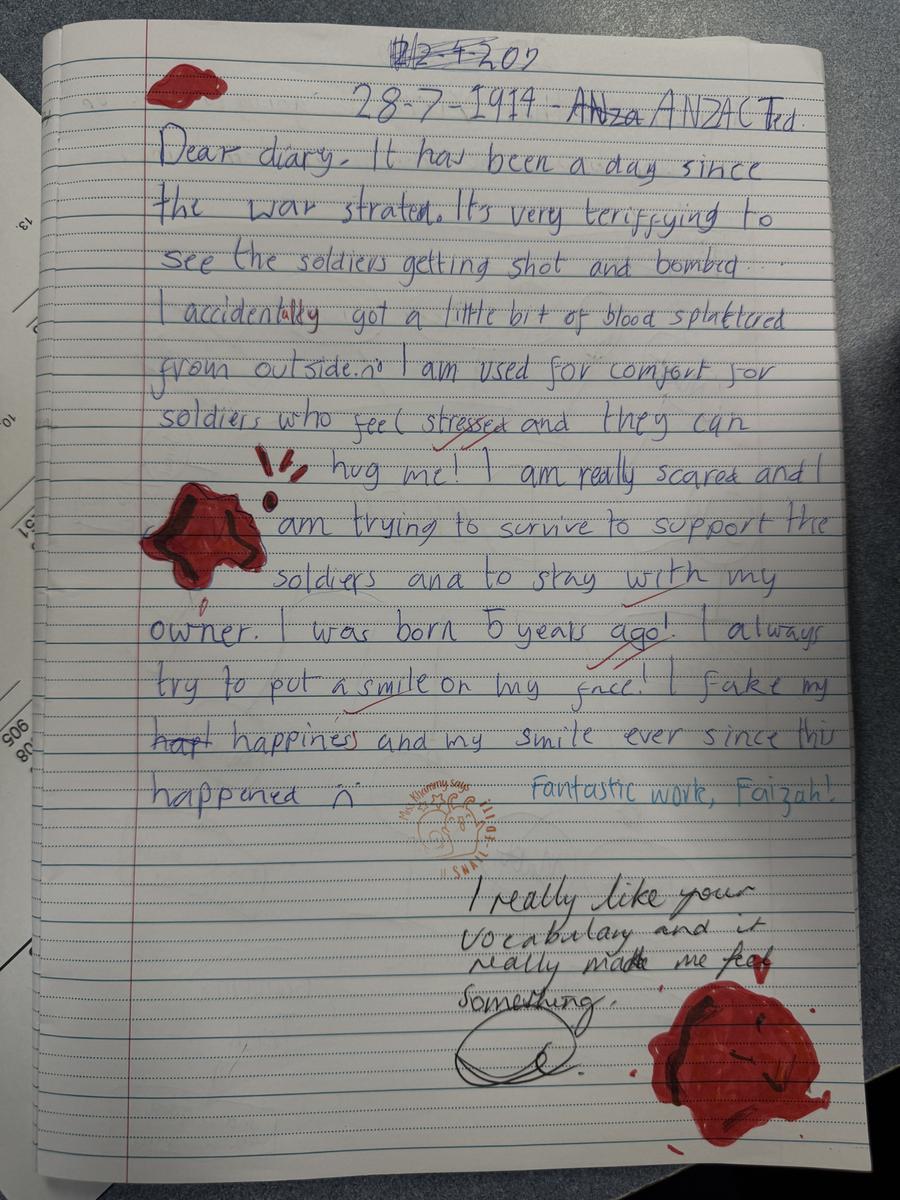 28-7-1914 - ANZAC Ted.
Dear diary. It has been a day since
the war strated. It's very teriffying to
see the soldiers getting shot and bombed
I accidentally got a little bit of blood splattered
from outside. I am used for comfort for
soldiers who feel stressed and they can
hug me! I am really scared and I
am trying to survive to support the
soldiers and to stay with my
owner. I was born 5 years ago! I always
try to put a smile on my face! I fake my
happiness and my smile ever since this
happened
Fantastic work, Faizah!
Mrs. Khammy says
I really like your
vocabulary and it
really made me feel
something.
13.
10
905